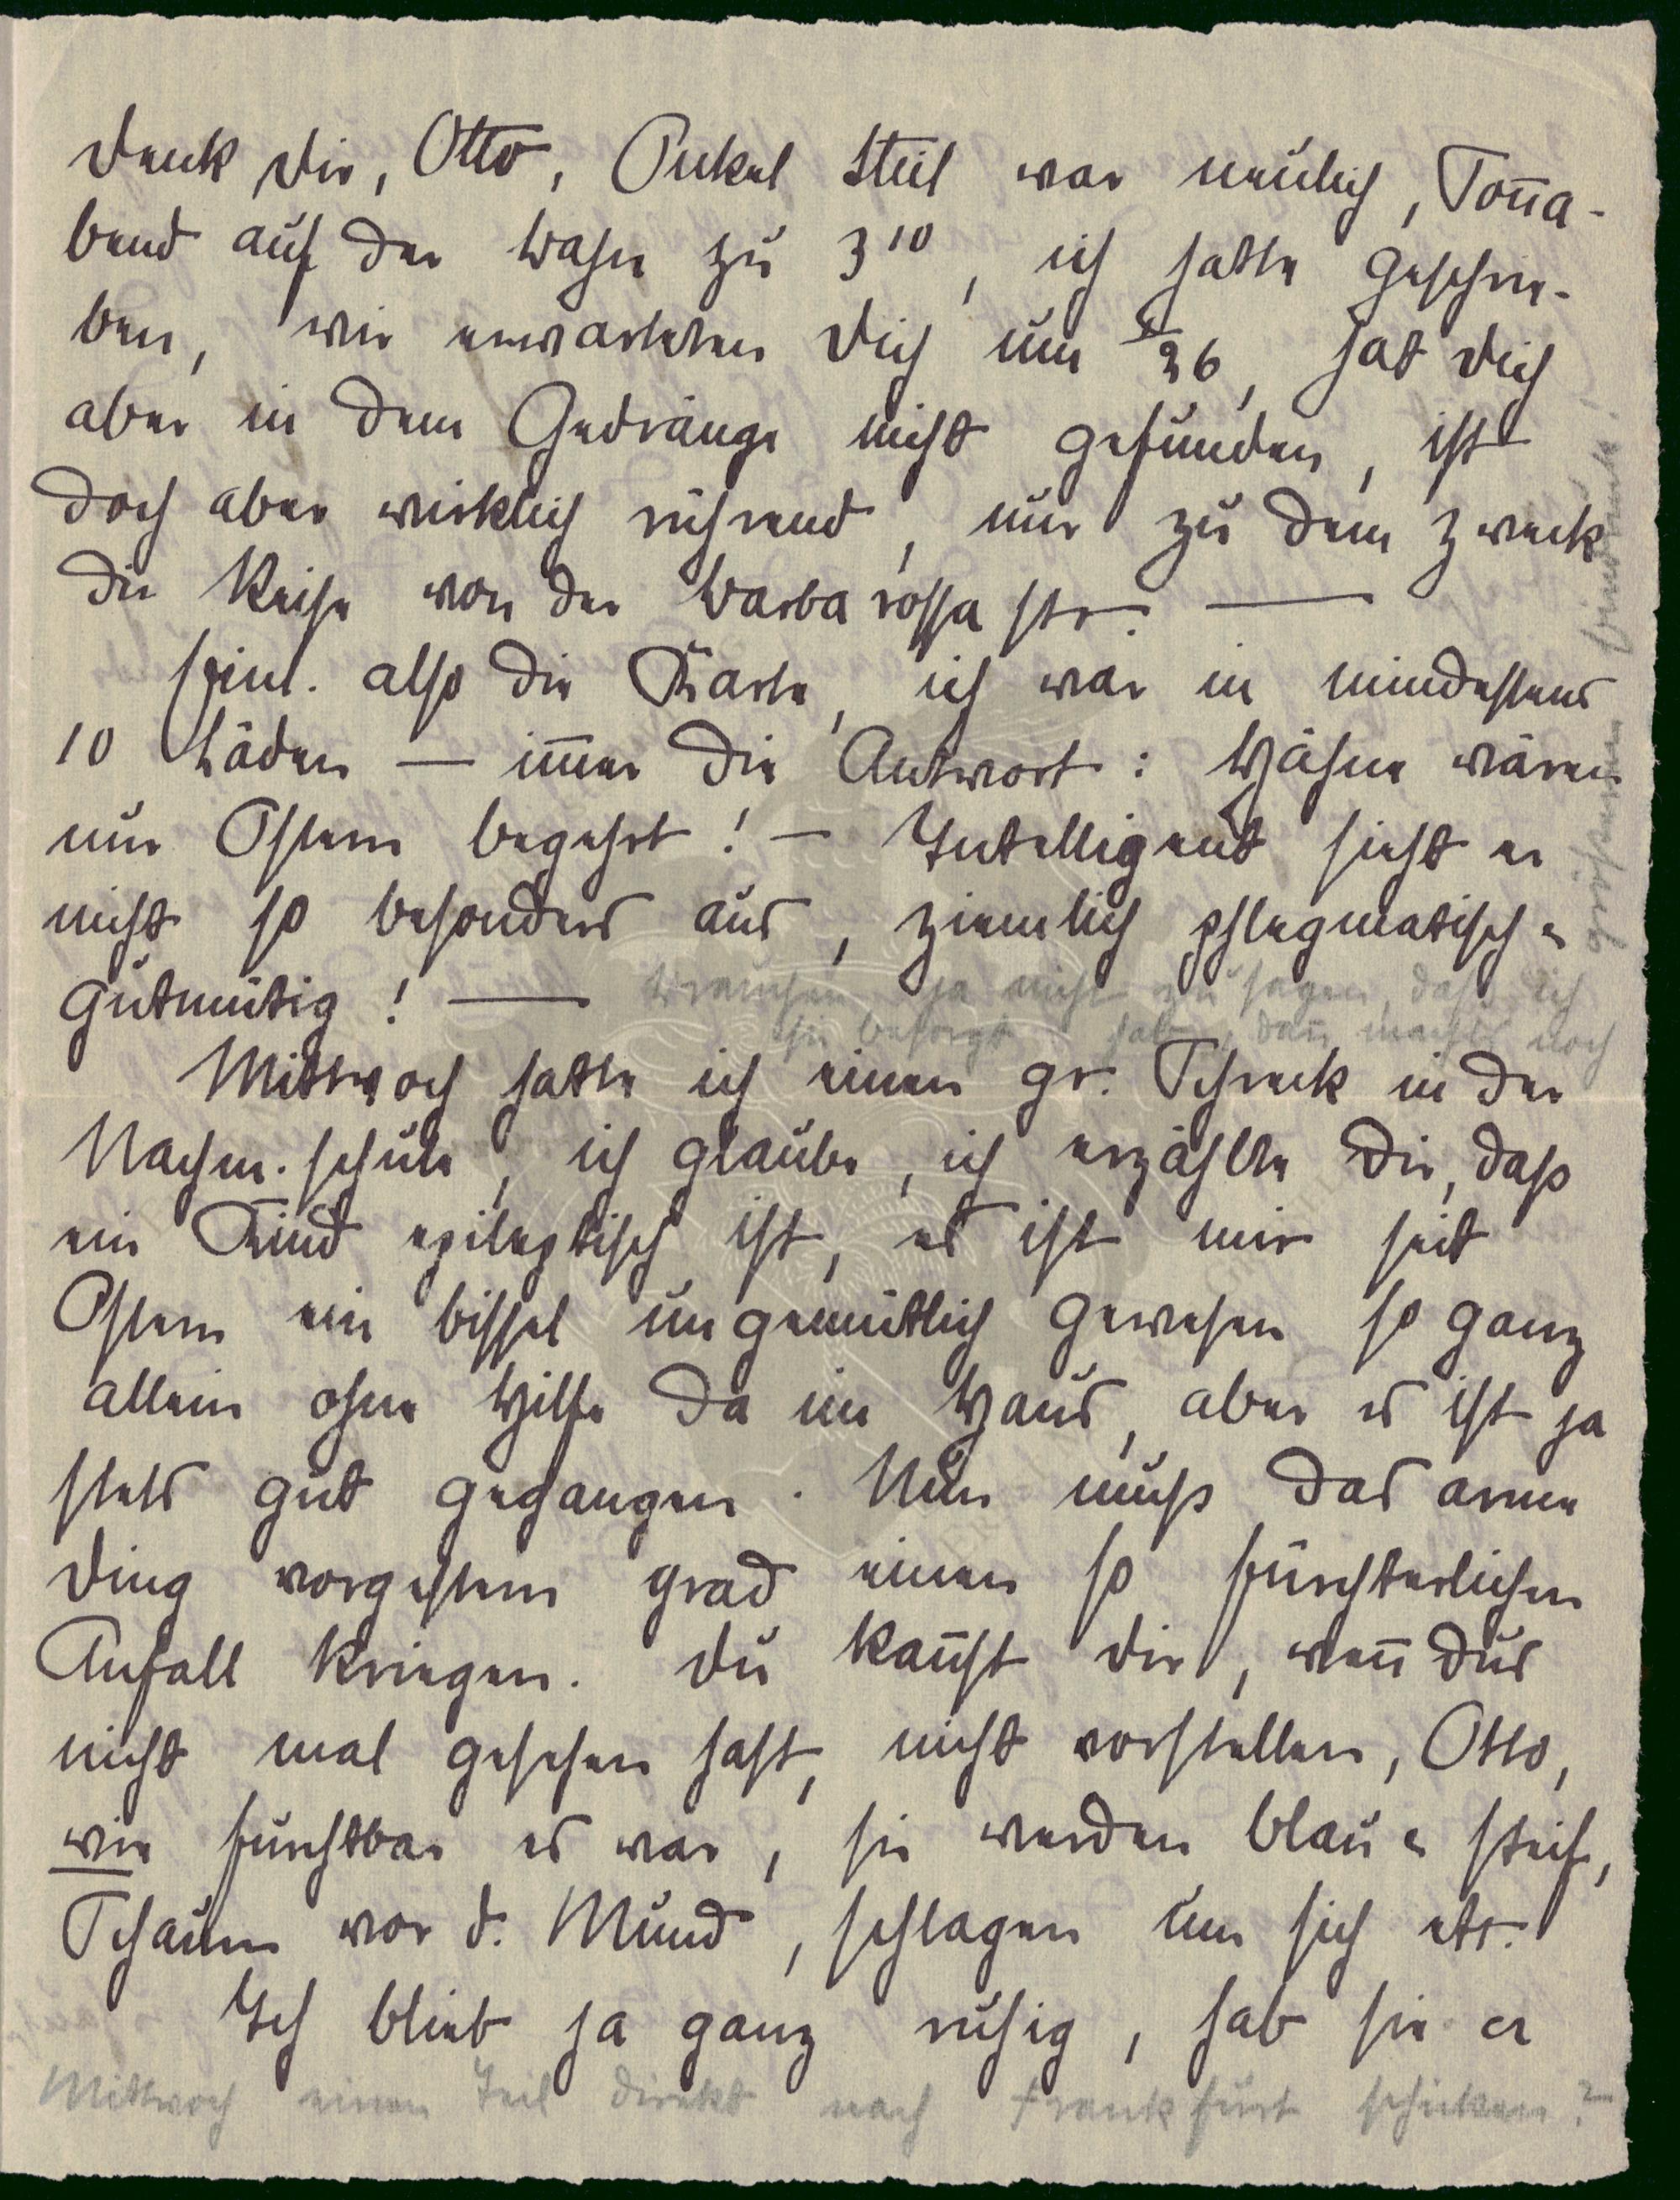 Denk Dir, Otto, Onkel Steil war neulich, Sonna-
bend auf der Bahn zu 3¹⁰, ich hatte geschrie-
ben, wir erwarteten Dich um ½6, hat Dich
aber in dem Gedränge nicht gefunden, ist
doch aber wirklich rührend, nur zu dem Zweck
die Reise von der Barbarossastr. —
Heinl. also die Karte, ich war in mindestens
10 Läden — im̅er die Antwort: Hähne wären
nur Ostern begehrt! — Intelligent sieht er
nicht so besonders aus, ziemlich phlegmatisch u
gutmütig! —
Brauchen ja nicht zu sagen, daß ich
sie besorgt hab, dan̅ machts noch
größeren
Mittwoch hatte ich einen gr. Schreck in der
Nachm.schule, ich glaube, ich erzählte Dir, daß
ein Kind epileptisch ist, es ist mir seit
Ostern ein bissel ungemütlich gewesen so ganz
allein ohne Hilfe da im Haus, aber es ist ja
stets gut gegangen. Nun muß das arme
Ding vorgestern grad einen so fürchterlichen
Anfall kriegen. Du kan̅st Dir, wen̅ Dus
nicht mal gesehen hast, nicht vorstellen, Otto,
wie furchtbar es war, sie werden blau u steif,
Schaum vor d. Mund, schlagen um sich etc.
Ich blieb ja ganz ruhig, hab sie er
Mittwoch einen Teil direkt nach Frankfurt schicken?